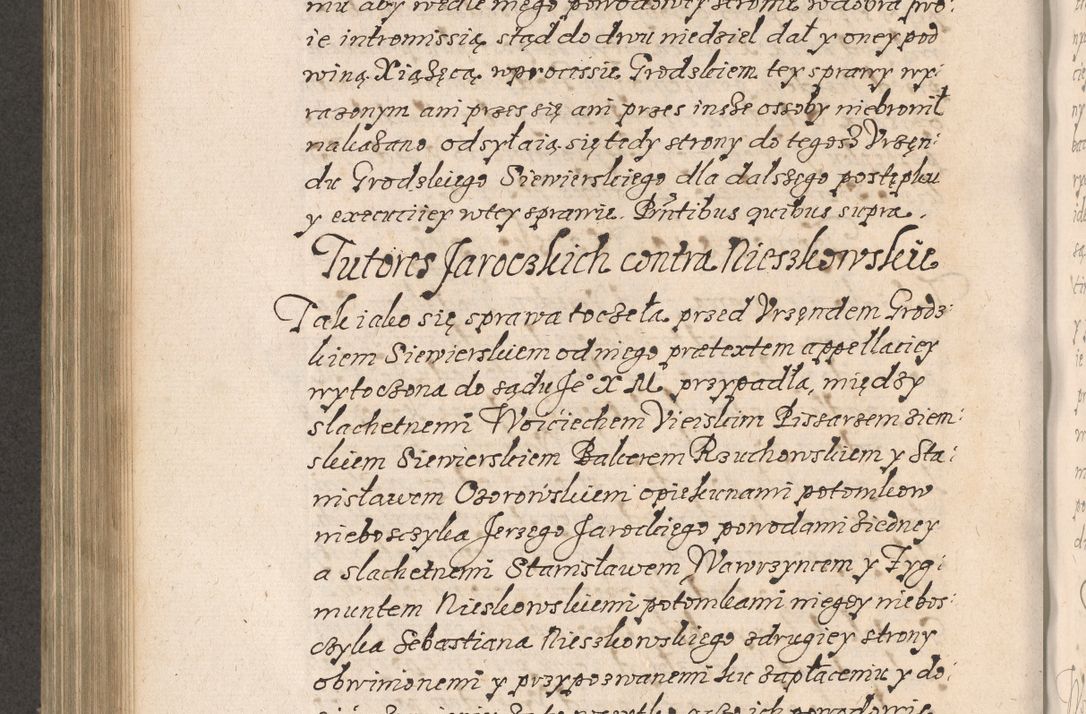 mu aby wedle niego powodowey stronie wdobra swo:
ie intromissią stąd do dwu niedziel dał y oney pod
winą Xiążęcą wprocissie Grodskiem tey sprawy wy:
rażonym ani przes się ani przes insze ossoby niebronił
nakazano odsyłaią się tedy strony do tegosz Vrzęn:
du Grodskiego Siewierskiego dla dalszego postępku
y execuciiey wtey sprawie. Pñtibus quibus supra.
Tutores Jaroczkich contra Nieszkowskie
Tak iako się sprawa toczeła przed Vrzęndem Grodz:
kiem Siewierskiem od niego prætextem appellaciey
wytoczona do sądu Je° X M. przypadła, między
slachetnemi Woiciechem Vieiskim Piszarzem ziem:
skiem Siewierskiem Balcerem Rzuchowskiem y Sta:
nisławem Ozorowskiemi opiekunami potomkow
niebosczyka Jerzego Jarockiego powodami ziedney
a slachetnemi Stanisławem Wawrzyncem y Zyg:
muntem Nieskowskiemi potomkami niegdy niebos:
czyka Sebastiana Nieszkowskiego zdrugiey strony
obwinionemi y przypozwanemi ku zapłaceniu y do: